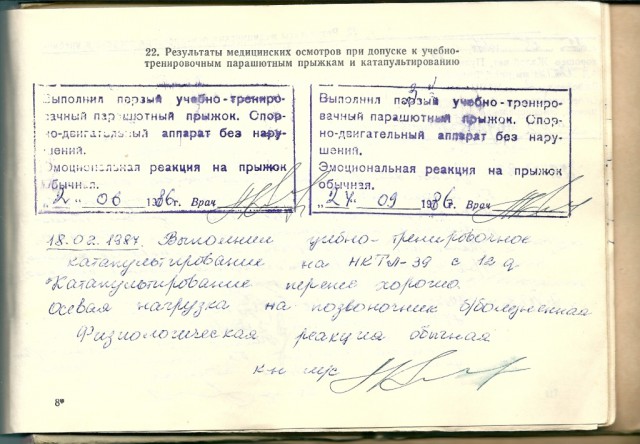 22. Результаты медицинских осмотров при допуске к учебно-
тренировочным парашютным прыжкам и катапультированию
Выполнил первый учебно-трениро-
вачный парашютный прыжок. Опор-
но-двигательный аппарат без нару-
шений.
Эмоциональная реакция на прыжок
обычная.
"2" 06 1986г. Врач
Выполнил первый учебно-трениро-
вачный парашютный прыжок. Опор-
но-двигательный аппарат без нару-
шений.
Эмоциональная реакция на прыжок
обычная.
"27" 09 1986г. Врач
18.02.1987. Выполнил учебно-тренировочное
катапультирование на НКТЛ-39 с 12 д
Катапультирование перенес хорошо.
Осевая нагрузка на позвоночник б/болезненная
Физиологическая реакция обычная
к-н м/с
8*